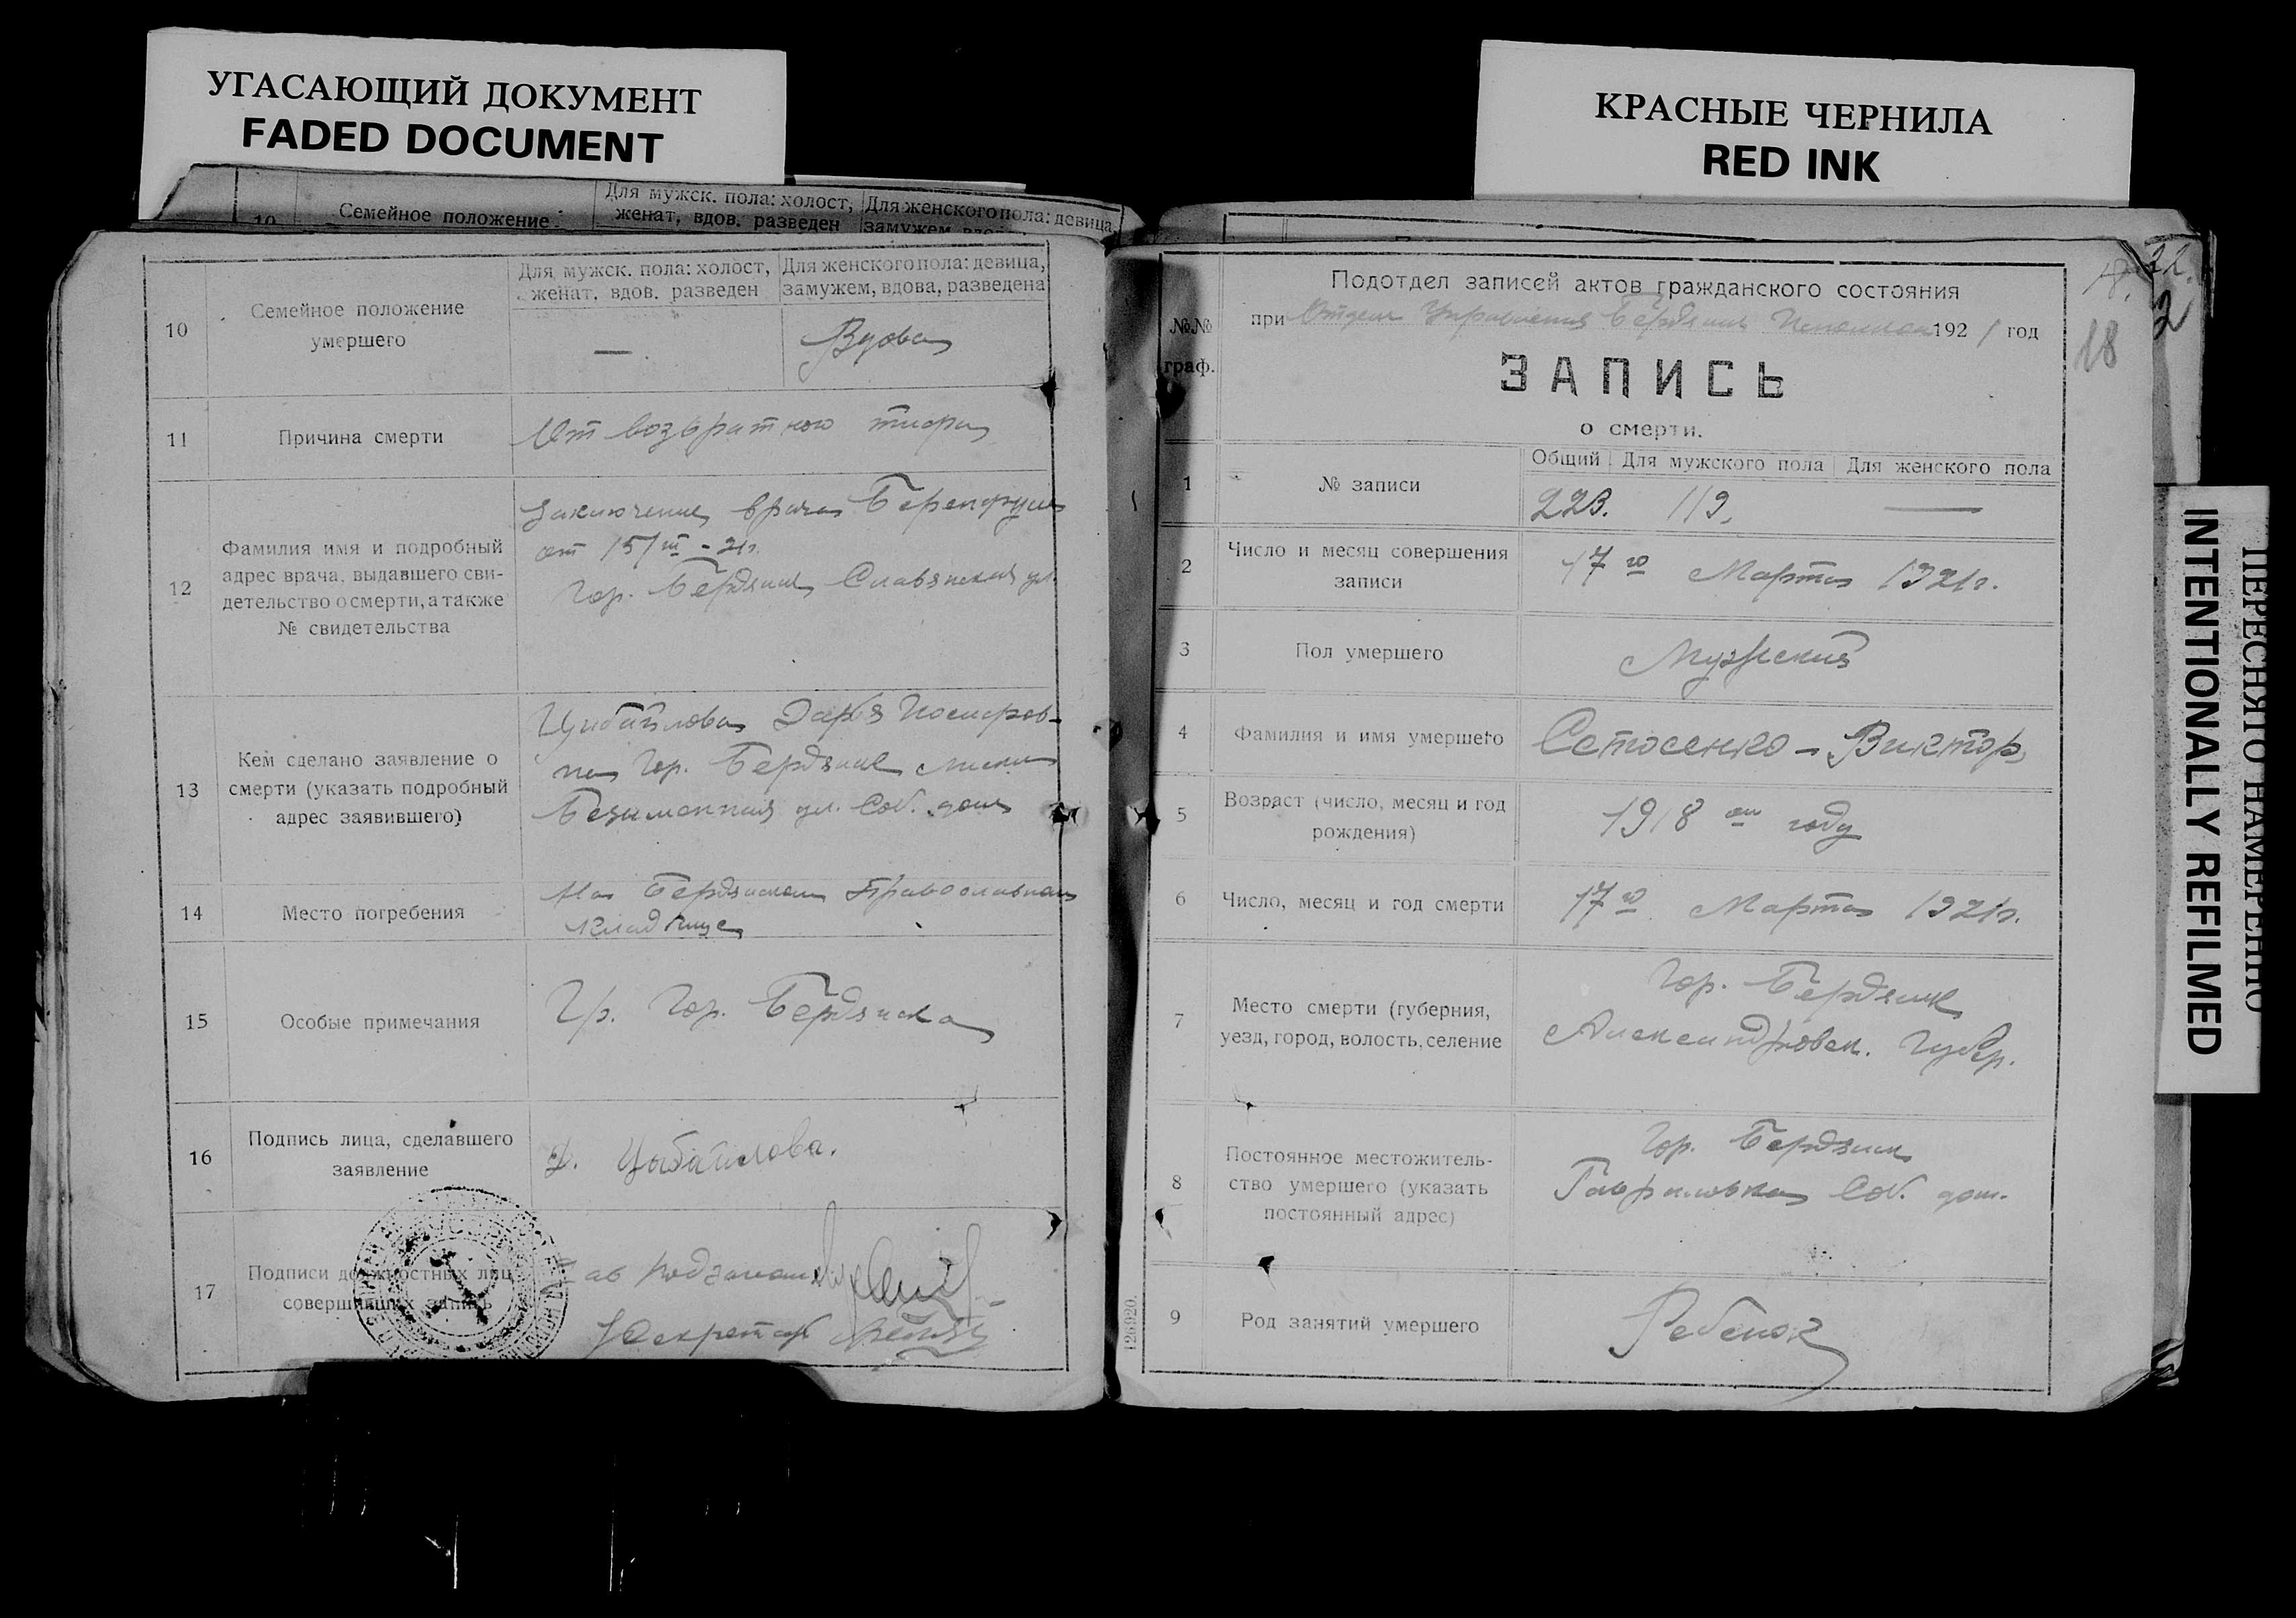 УГАСАЮЩИЙ ДОКУМЕНТ
FADED DOCUMENT
КРАСНЫЕ ЧЕРНИЛА
RED INK
ПЕРЕСНЯТО НАМЕРЕННО
INTENTIONALLY REFILMED
10 Семейное положение Для мужск. пола: холост, женат, вдов. разведен Для женского пола: девица,
замужем
10
Семейное положение
умершего
Для мужск. пола: холост,
женат. вдов. разведен
Для женского пола: девица,
замужем, вдова, разведена
—
Вдова
11
Причина смерти
От возвратного тифа
12
Фамилия имя и подробный
адрес врача, выдавшего сви-
детельство о смерти, а также
№ свидетельства
Заключение врача
от 15/III - 21г.
Гор. Бердянск, Славянская ул.
13
Кем сделано заявление о
смерти (указать подробный
адрес заявившего)
Цибайлова Дарья
на Гор. Бердянск
Безименная ул. Соб. дом
14
Место погребения
На Бердянском Православном
кладбище
15
Особые примечания
Гр. Гор. Бердянска
16
Подпись лица, сделавшего
заявление
Д. Цыбайлова.
17
Подписи должностных лиц
совершивших запись
Зав
Секретарь
№№
граф.
Подотдел записей актов гражданского состояния
при Отделе Управления Бердянск Исполкома 1921 год
18
ЗАПИСЬ
о смерти.
1
№ записи
Общий Для мужского пола Для женского пола
223. 119. —
2
Число и месяц совершения
записи
17го Марта 1921г.
3
Пол умершего
Мужской
4
Фамилия и имя умершего
Сетосенко - Виктор
5
Возраст (число, месяц и год
рождения)
1918 ом году
6
Число, месяц и год смерти
17го Марта 1921г.
7
Место смерти (губерния,
уезд, город, волость, селение
Гор. Бердянск
Александровск. Губер.
8
Постоянное местожитель-
ство умершего (указать
постоянный адрес)
Гор. Бердянск
Гавриловка Соб. дом.
9
Род занятий умершего
Ребенок